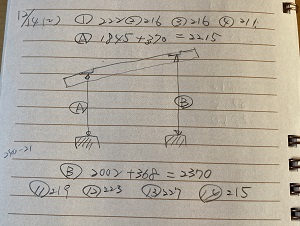 12/14(2) ① 222 ② 216 ③ 216 ④ 211
Ⓐ 1845 + 370 = 2215
Ⓐ Ⓑ
240-21
Ⓑ 2002 + 368 = 2370
⑪ 219 ⑫ 223 ⑬ 227 ⑭ 215